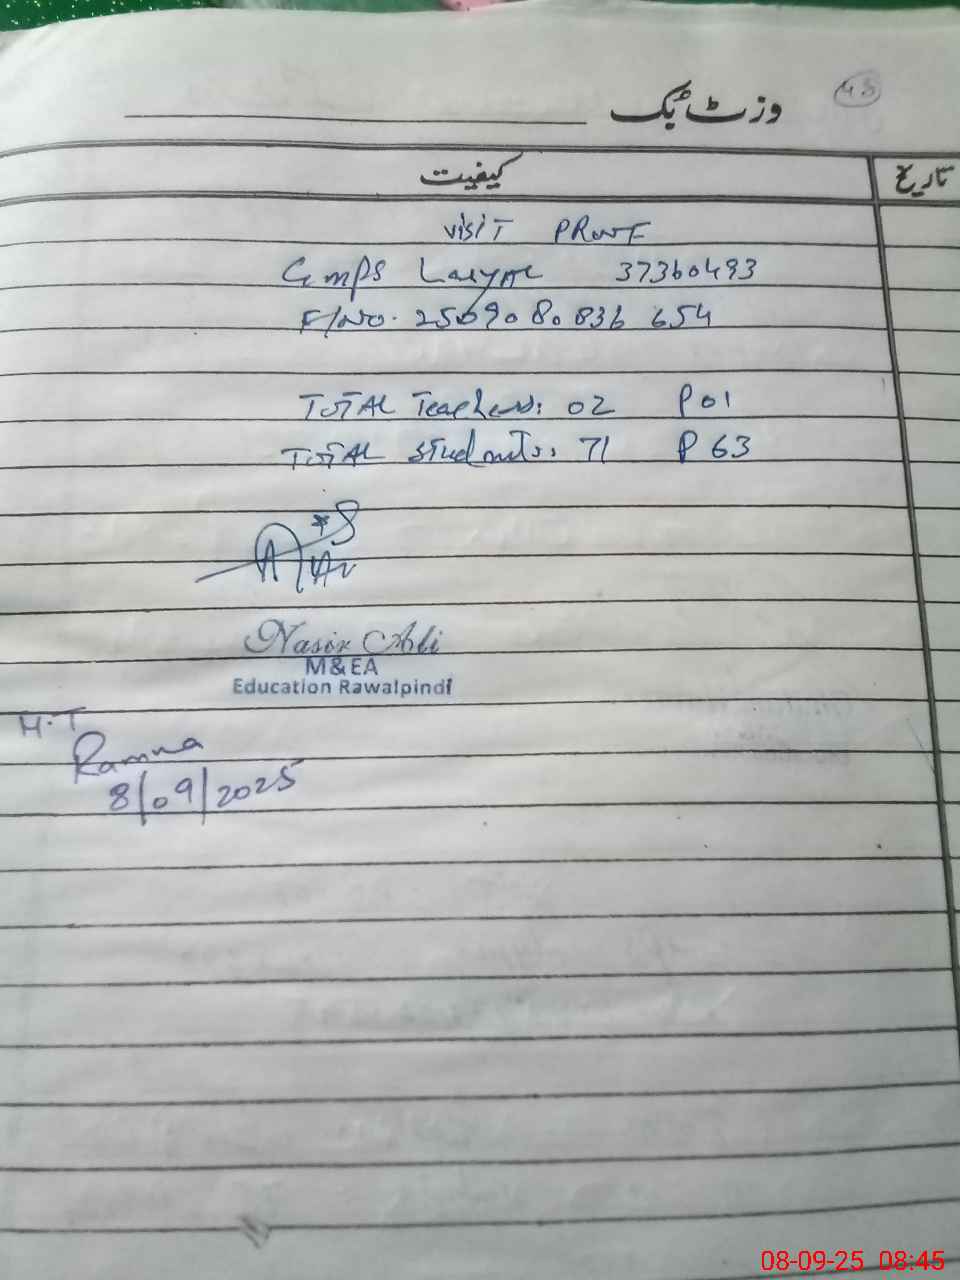 43
وزٹ بک
کیفیت
تاریخ
VISIT PROOF
GMPS 37360493
F/No. 2509080836 654
TOTAL Teachers: 02 P 01
TOTAL Students: 71 P 63
Nasir Ali
M&EA
Education Rawalpindi
H.T
Ramna
8/09/2025
08-09-25 08:45